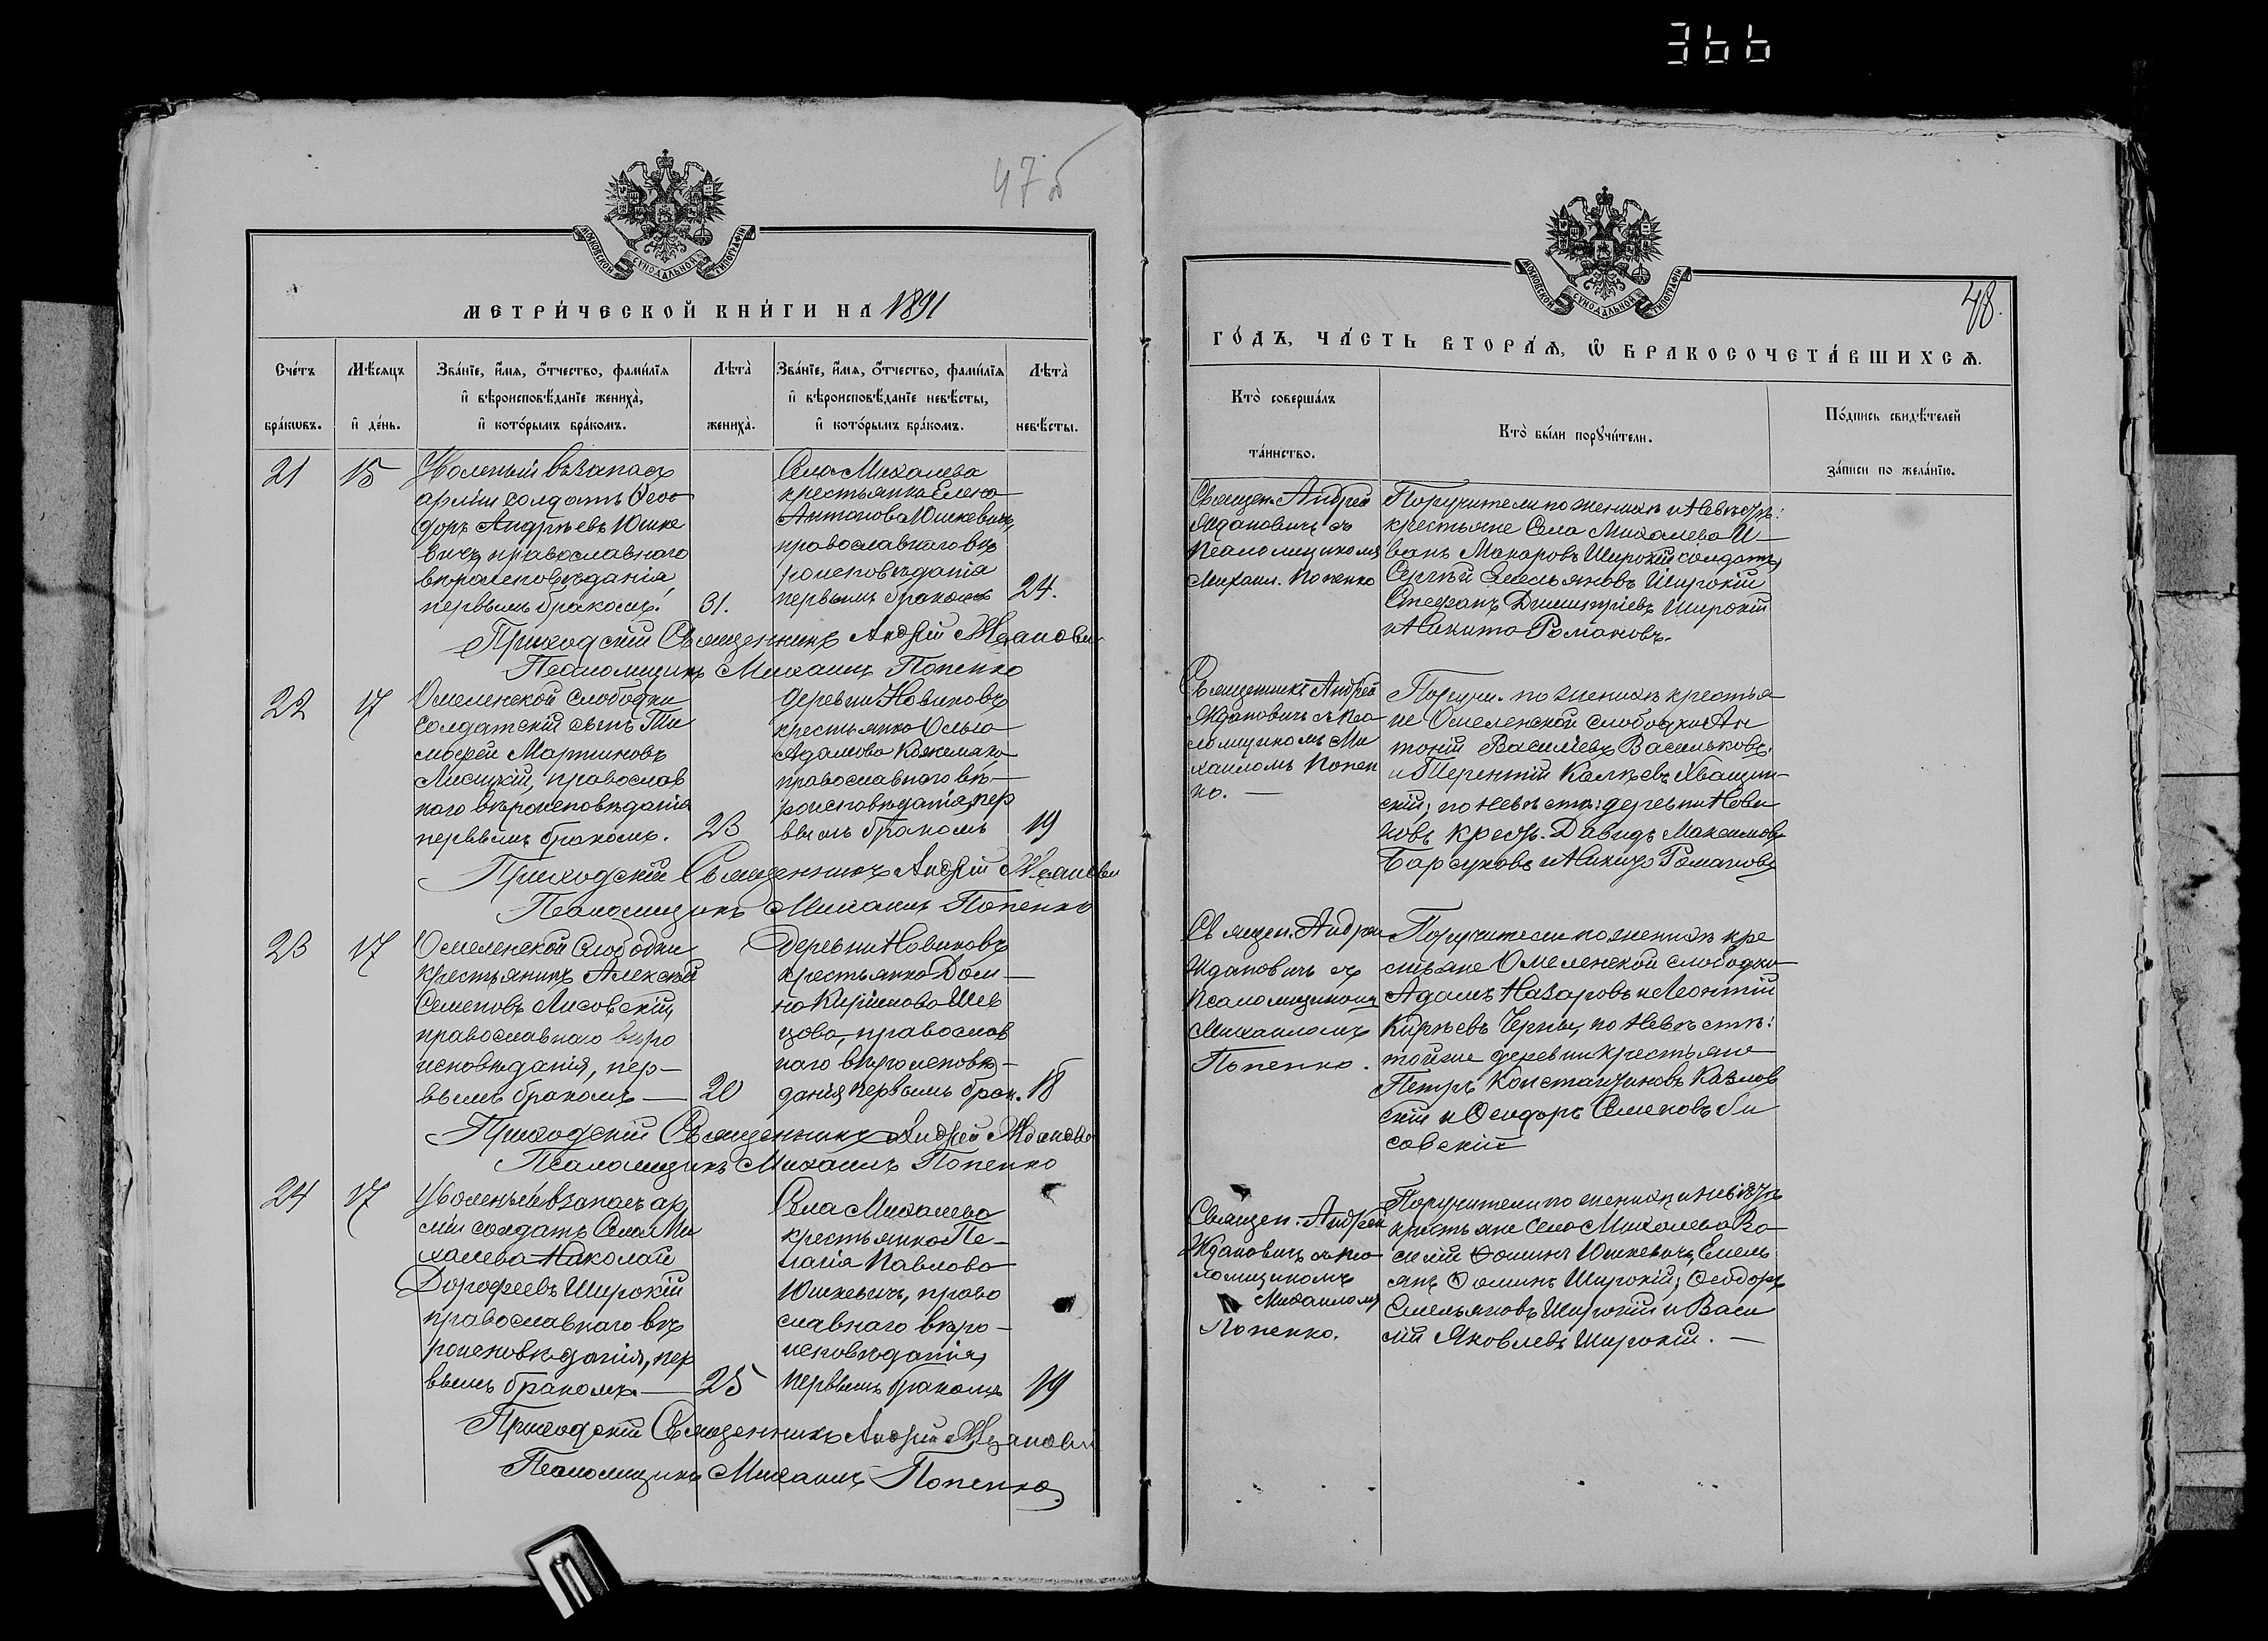 366
47 об
МОСКОВСКОЙ СѴНОДАЛЬНОЙ ТИПОГРАФІИ
МЕТРИ́ЧЕСКОЙ КНИ́ГИ НА 1891
Сче́тъ бра́кѡвъ.
Мѣ́сяцъ и҆ де́нь.
Зва́нїе, и҆́мѧ, ѻ҆́тчество, фами́лїѧ и҆ вѣроисповѣ́данїе жениха̀, и҆ кото́рымъ бра́комъ.
Лѣта̀ жениха̀.
Зва́нїе, и҆́мѧ, ѻ҆́тчество, фами́лїѧ и҆ вѣроисповѣ́данїе невѣ́сты, и҆ кото́рымъ бра́комъ.
Лѣта̀ невѣ́сты.
21
15
Уволеный въ запасъ
арміи солдатъ Ѳео-
доръ Андрѣевъ Юшке
вичъ, православнаго
вѣроисповѣданія
первымъ бракомъ.
31.
Села Михалева
крестьянка Елена
Антонова Юшкевичъ,
православнаго вѣ
роисповѣданія
первымъ бракомъ
24.
Приходскій Священникъ Андрей Жданович
Псаломщикъ Михаилъ Попенко
22
17
Омеленской Слободки
солдатскій сынъ Ти
мофей Мартиновъ
Лисицкій, православ
наго вѣроисповѣданія
первымъ бракомъ.
23
деревни Новиковъ
крестьянка Ольга
Адамова Кожемяко
православнаго вѣ-
роисповѣданія, пер
вымъ бракомъ
19
Приходскій Священникъ Андрей Жданович
Псаломщикъ Михаилъ Попенко
23
17
Омеленской Слободки
крестьянинъ Алексѣй
Семеновъ Лисовскій,
православнаго вѣро
исповѣданія, пер-
вымъ бракомъ
20
деревни Новиковъ
крестьянка Дом-
на Кирикова Шев
цова, православ
наго вѣроисповѣ-
данія первымъ брак.
18
Приходскій Священникъ Андрей Жданович
Псаломщикъ Михаилъ Попенко
24
17
Уволеный въ запасъ ар
міи солдатъ Села Ми
халева Николай
Дорофеевъ Широкій
православнаго вѣ
роисповѣданія, пер
вымъ бракомъ
25
Села Михалева
крестьянка Пе-
лагія Павлова
Юшкевичъ, право
славнаго вѣро-
исповѣданія,
первымъ бракомъ
19
Приходскій Священникъ Андрей Жданович
Псаломщикъ Михаилъ Попенко
МОСКОВСКОЙ СѴНОДАЛЬНОЙ ТИПОГРАФІИ
48.
ГО́ДЪ, ЧА́СТЬ ВТОРА́Ѧ, Ѡ҆ БРАКОСОЧЕТА́ВШИХСѦ.
Кто̀ соверша́лъ та́инство.
Кто̀ бы́ли порꙋчи́тели.
По́дпись свидѣ́телей за́писи по жела́нїю.
Священ. Андрей
Ждановичъ съ
Псаломщикомъ
Михаил. Попенко
Поручители по женихѣ и Невѣстѣ:
крестьяне Села Михалева И-
ванъ Макаровъ Широкій солдатъ,
Сергѣй Емельяновъ Широкій
Стефанъ Димитріевъ Широкій
и Никита Романовъ.
Священникъ Андрей
Ждановичъ съ Пса
ломщикомъ Ми
хаиломъ Попен
ко.
Поручи. по женихѣ крестья
не Омеленской слободки Ан
тоній Василіевъ Васильковъ;
и Терентій Калѣевъ Хващин-
скій; по невѣстѣ: деревни Нови
ковъ крест. Давидъ Максимовъ
Барсуковъ и Никита Романовъ
Священ. Андрей
Ждановичъ съ
Псаломщикомъ
Михаиломъ
Попенко.
Поручители по женихѣ кре
стьяне Омеленской слободки
Адамъ Назаровъ и Леонтій
Кирѣевъ Черны, по Невѣстѣ:
тойже деревни крестьяне
Петръ Константиновъ Казлов
скій и Ѳеодоръ Семеновъ Ли
совскій
Священ. Андрей
Ждановичъ съ пса
ломщикомъ
Михаиломъ
Попенко.
Поручители по женихѣ и невѣстѣ
крестьяне Села Михалева Ва-
силій Ѳоминъ Юшкевичъ, Емель
янъ Ѳоминъ Широкій; Ѳеодоръ
Емельяновъ Широкій и Васи
лій Яковлевъ Широкій.